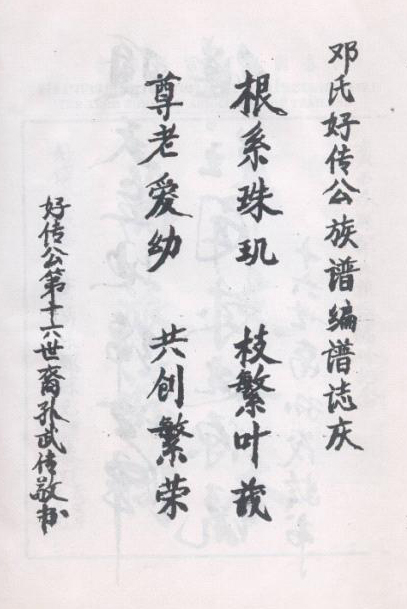 邓氏好传公族谱编谱志庆
根系珠玑 枝繁叶茂
尊老爱幼 共创繁荣
好传公第十六世裔孙武传敬书